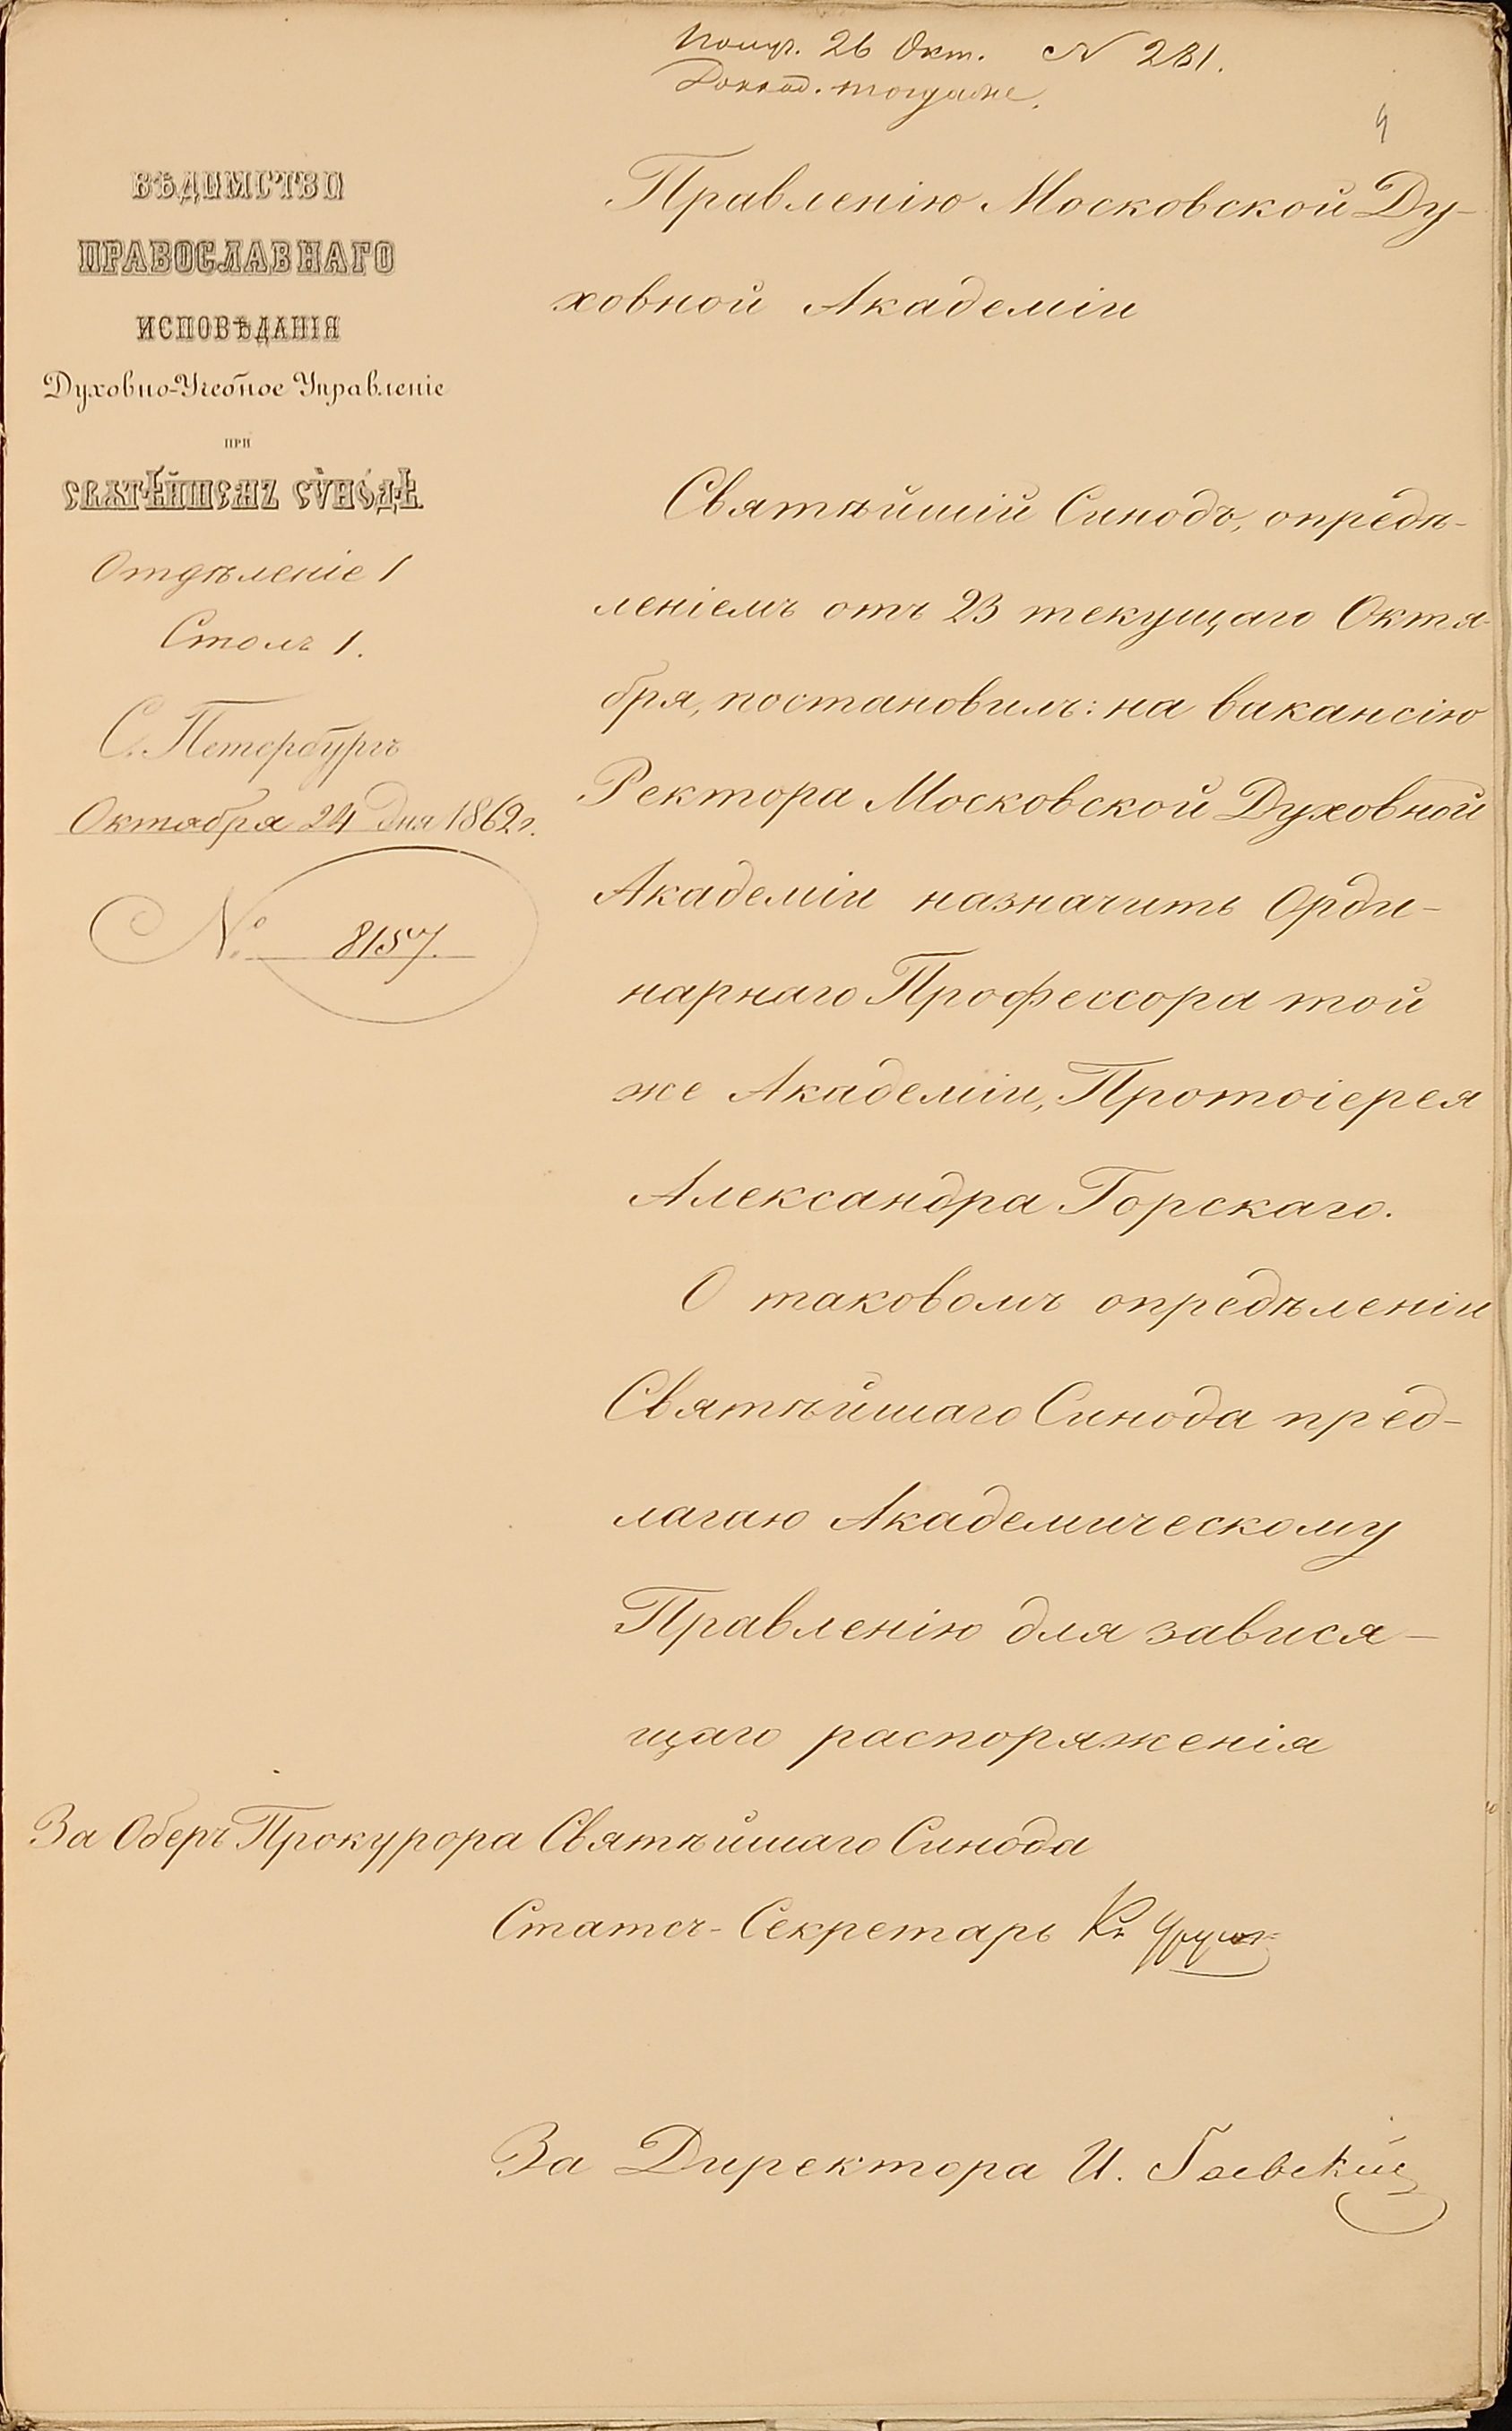 Получ. 26 Окт. N 281.
Доклад. тогда же.
4
ВѢДОМСТВО
ПРАВОСЛАВНАГО
ИСПОВѢДАНІЯ
Духовно-Учебное Управленіе
ПРИ
СВЯТѢЙШЕМЪ СѴНОДѢ.
Отдѣленіе 1
Столъ 1.
С. Петербургъ
Октября 24 дня 1862 г.
№ 8157.
Правленію Московской Ду-
ховной Академіи
Святѣйшій Синодъ, опредѣ-
леніемъ отъ 23 текущаго Октя-
бря, постановилъ: на вакансію
Ректора Московской Духовной
Академіи назначить Орди-
нарнаго Профессора той
же Академіи, Протоіерея
Александра Горскаго.
О таковомъ опредѣленіи
Святѣйшаго Синода пред-
лагаю Академическому
Правленію для завися-
щаго распоряженія
За Оберъ Прокурора Святѣйшаго Синода
Статсъ-Секретарь К.
За Директора И. Гаевскій